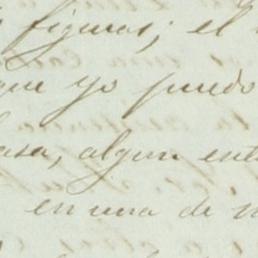 figuras; el
que yo puedo
casa, algun ent
en una de